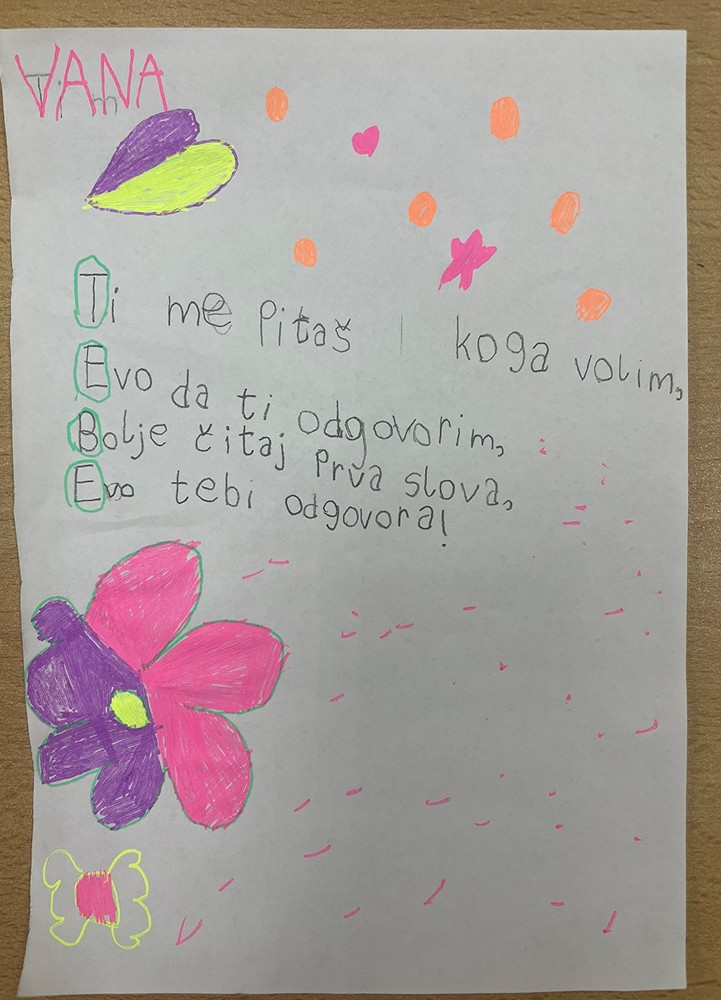 VANA
Ti me pitaš koga volim,
Evo da ti odgovorim,
Bolje čitaj prva slova,
Evo tebi odgovora!